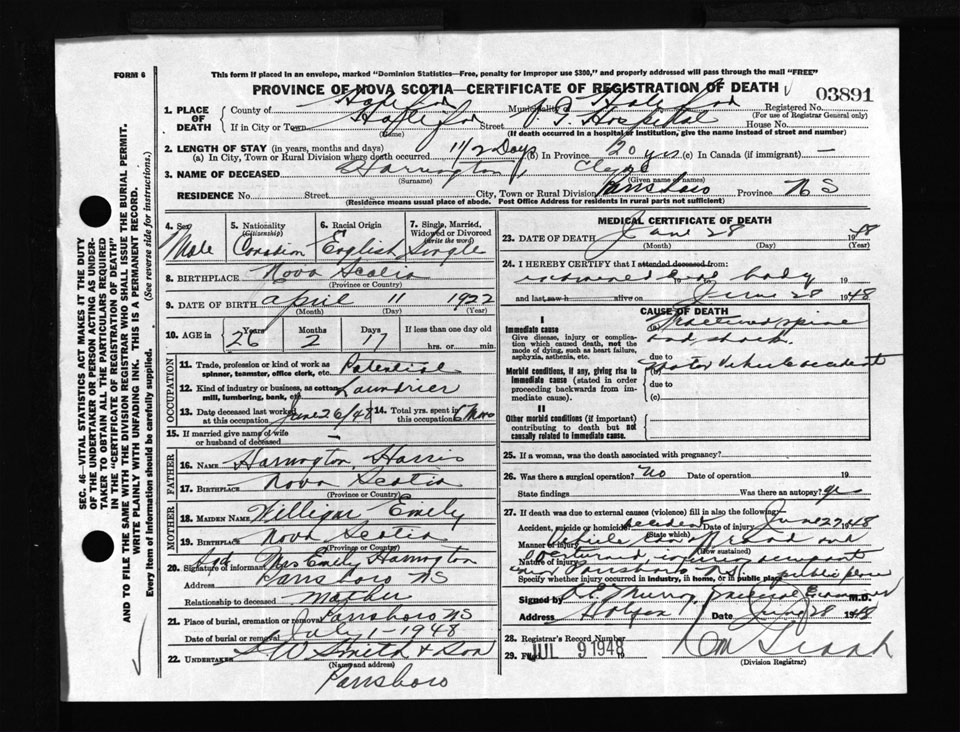 FORM 6
This form if placed in an envelope, marked "Dominion Statistics—Free, penalty for improper use $300," and properly addressed will pass through the mail "FREE"
PROVINCE OF NOVA SCOTIA—CERTIFICATE OF REGISTRATION OF DEATH
03891
1. PLACE OF DEATH
County of Municipality Registered No.
(For use of Registrar General only)
If in City or Town Street Hospital House No.
(Name) (If death occurred in a hospital or institution, give the name instead of street and number)
2. LENGTH OF STAY (in years, months and days)
(a) In City, Town or Rural Division where death occurred 1 1/2 Days (b) In Province 20 yrs (c) In Canada (if immigrant) —
3. NAME OF DECEASED Harrington, Clyde
(Surname) (Given name or names)
RESIDENCE No. Street City, Town or Rural Division Parrsboro Province N S
(Residence means usual place of abode. Post Office Address for residents in rural parts not sufficient)
4. Sex Male
5. Nationality (Citizenship) Canadian
6. Racial Origin English
7. Single, Married, Widowed or Divorced (write the word) Single
8. BIRTHPLACE Nova Scotia
(Province or Country)
9. DATE OF BIRTH April 11 1922
(Month) (Day) (Year)
10. AGE in Years 26 Months 2 Days 17 If less than one day old hrs. or min.
OCCUPATION
11. Trade, profession or kind of work as spinner, teamster, office clerk, etc.
12. Kind of industry or business, as cotton mill, lumbering, bank, etc.
13. Date deceased last worked at this occupation June 26/48
14. Total yrs. spent in this occupation 6 Mos
15. If married give name of wife or husband of deceased —
FATHER
16. NAME Harrington, Harris
17. BIRTHPLACE Nova Scotia
(Province or Country)
MOTHER
18. MAIDEN NAME Willigar Emily
19. BIRTHPLACE Nova Scotia
(Province or Country)
20. Signature of informant Sgd Mrs Emily Harrington
Address Parrsboro NS
Relationship to deceased mother
21. Place of burial, cremation or removal Parrsboro NS
Date of burial or removal July 1 - 1948
22. UNDERTAKER Smith & Son
(Name and address)
Parrsboro
MEDICAL CERTIFICATE OF DEATH
23. DATE OF DEATH June 28 1948
(Month) (Day) (Year)
24. I HEREBY CERTIFY that I attended deceased from:
examined dead body 19
and last saw h alive on June 28 1948
CAUSE OF DEATH
I
Immediate cause
Give disease, injury or complication which caused death, not the mode of dying, such as heart failure, asphyxia, asthenia, etc.
(a) Fractured spine and shock
due to
Morbid conditions, if any, giving rise to immediate cause (stated in order proceeding backwards from immediate cause).
(b) Motor Vehicle accident
due to
(c)
II
Other morbid conditions (if important) contributing to death but not causally related to immediate cause.
25. If a woman, was the death associated with pregnancy?
26. Was there a surgical operation? No Date of operation 19
State findings Was there an autopsy? yes
27. If death was due to external causes (violence) fill in also the following:
Accident, suicide or homicide? Accident Date of injury June 27 1948
(State which)
Manner of injury
(How sustained)
Nature of injury
near Parrsboro N.S. public place
Specify whether injury occurred in industry, in home, or in public place
Signed by Murray Medical Examiner M.D.
Address Date June 28 1948
28. Registrar's Record Number
29. Filed JUL 9 1948 19
(Division Registrar)
SEC. 46—VITAL STATISTICS ACT MAKES IT THE DUTY OF THE UNDERTAKER OR PERSON ACTING AS UNDERTAKER TO OBTAIN ALL THE PARTICULARS REQUIRED IN THE "CERTIFICATE OF REGISTRATION OF DEATH"
AND TO FILE THE SAME WITH THE DIVISION REGISTRAR WHO SHALL ISSUE THE BURIAL PERMIT.
WRITE PLAINLY WITH UNFADING INK. THIS IS A PERMANENT RECORD.
Every item of information should be carefully supplied. (See reverse side for instructions.)